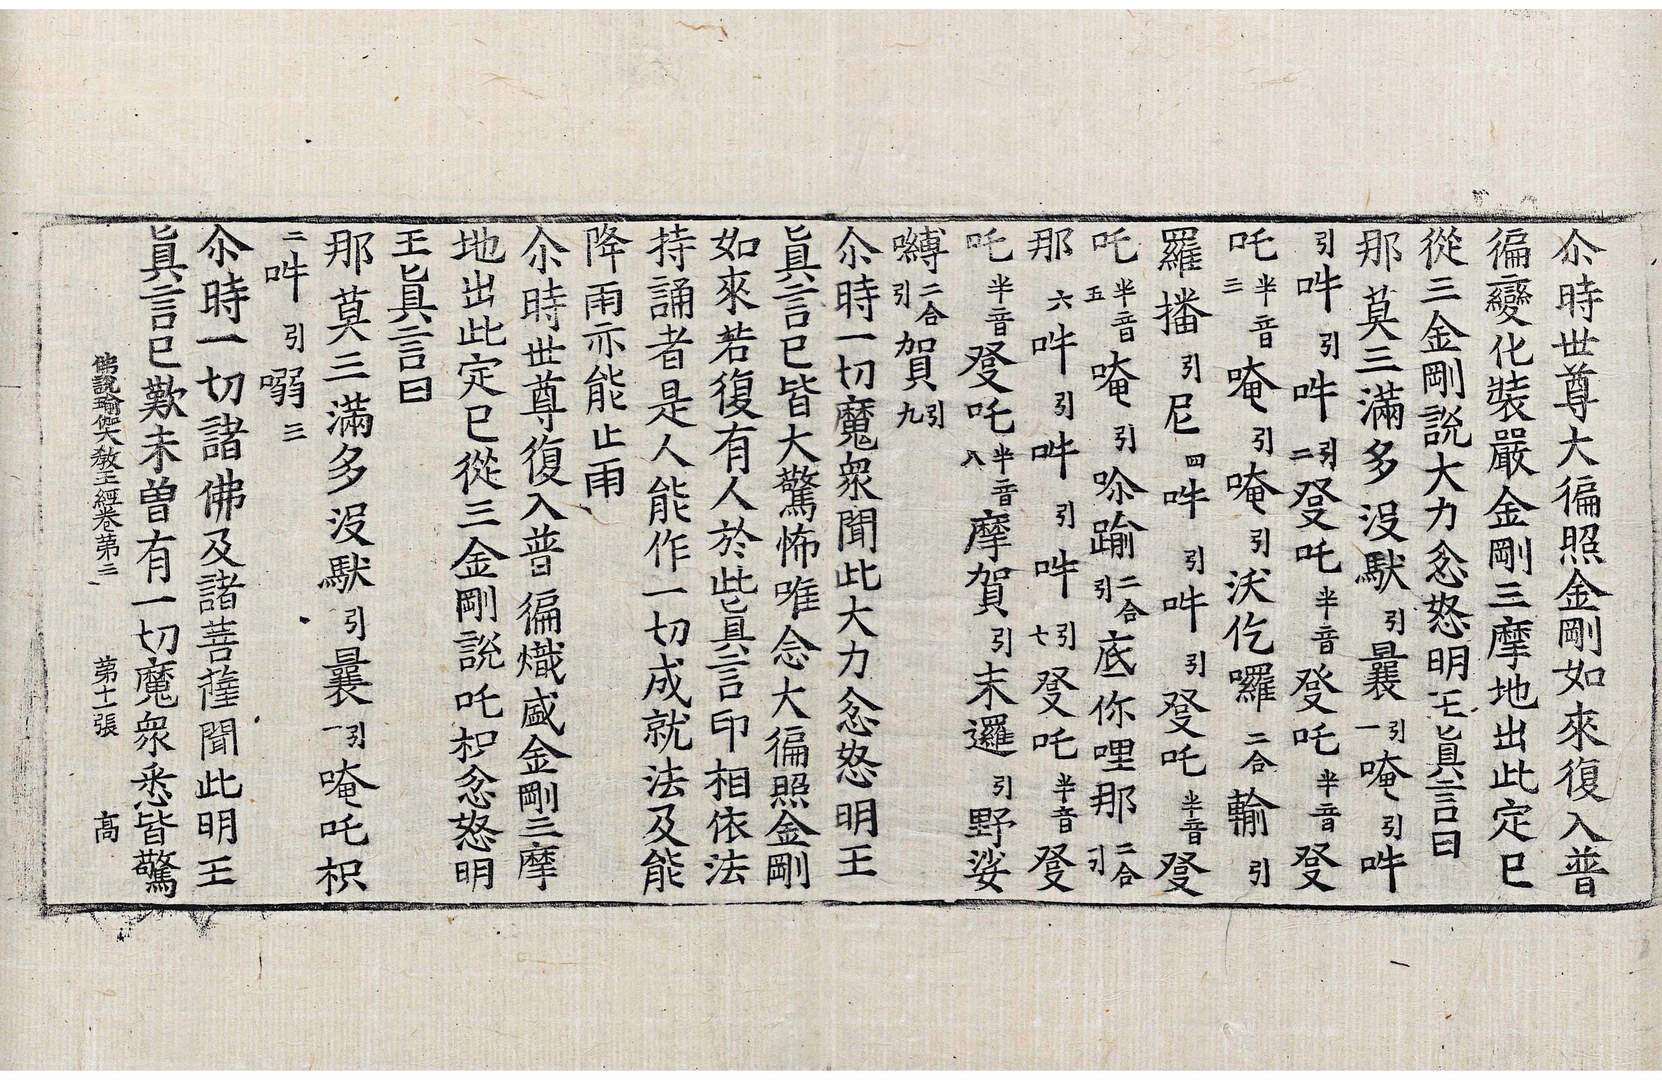 尒時世尊大徧照金剛如來復入普
徧變化裝嚴金剛三摩地出此定已
從三金剛說大力忿怒明王眞言曰
那莫三滿多没䭾引曩引一唵引吽
引吽引吽引二癹吒半音癹吒半音癹
吒半音三唵引唵引沃仡囉二合輸引
羅播引尼四吽引吽引癹吒半音癹
吒半音五唵引唹踰二合引底你哩那二合引
那六吽引吽引吽引七癹吒半音癹
吒半音癹吒半音八摩賀引末邏引野娑
嚩二合引賀引九
尒時一切魔衆聞此大力忿怒明王
眞言已皆大驚怖唯念大徧照金剛
如來若復有人於此眞言印相依法
持誦者是人能作一切成就法及能
降雨亦能止雨
尒時世尊復入普徧熾盛金剛三摩
地出此定已從三金剛說吒枳忿怒明
王眞言曰
那莫三滿多没䭾引曩引一唵吒枳
二吽引嗍三
尒時一切諸佛及諸菩薩聞此明王
眞言已歎未曾有一切魔衆悉皆驚
佛說瑜伽大教王經卷第三 第十一張 高